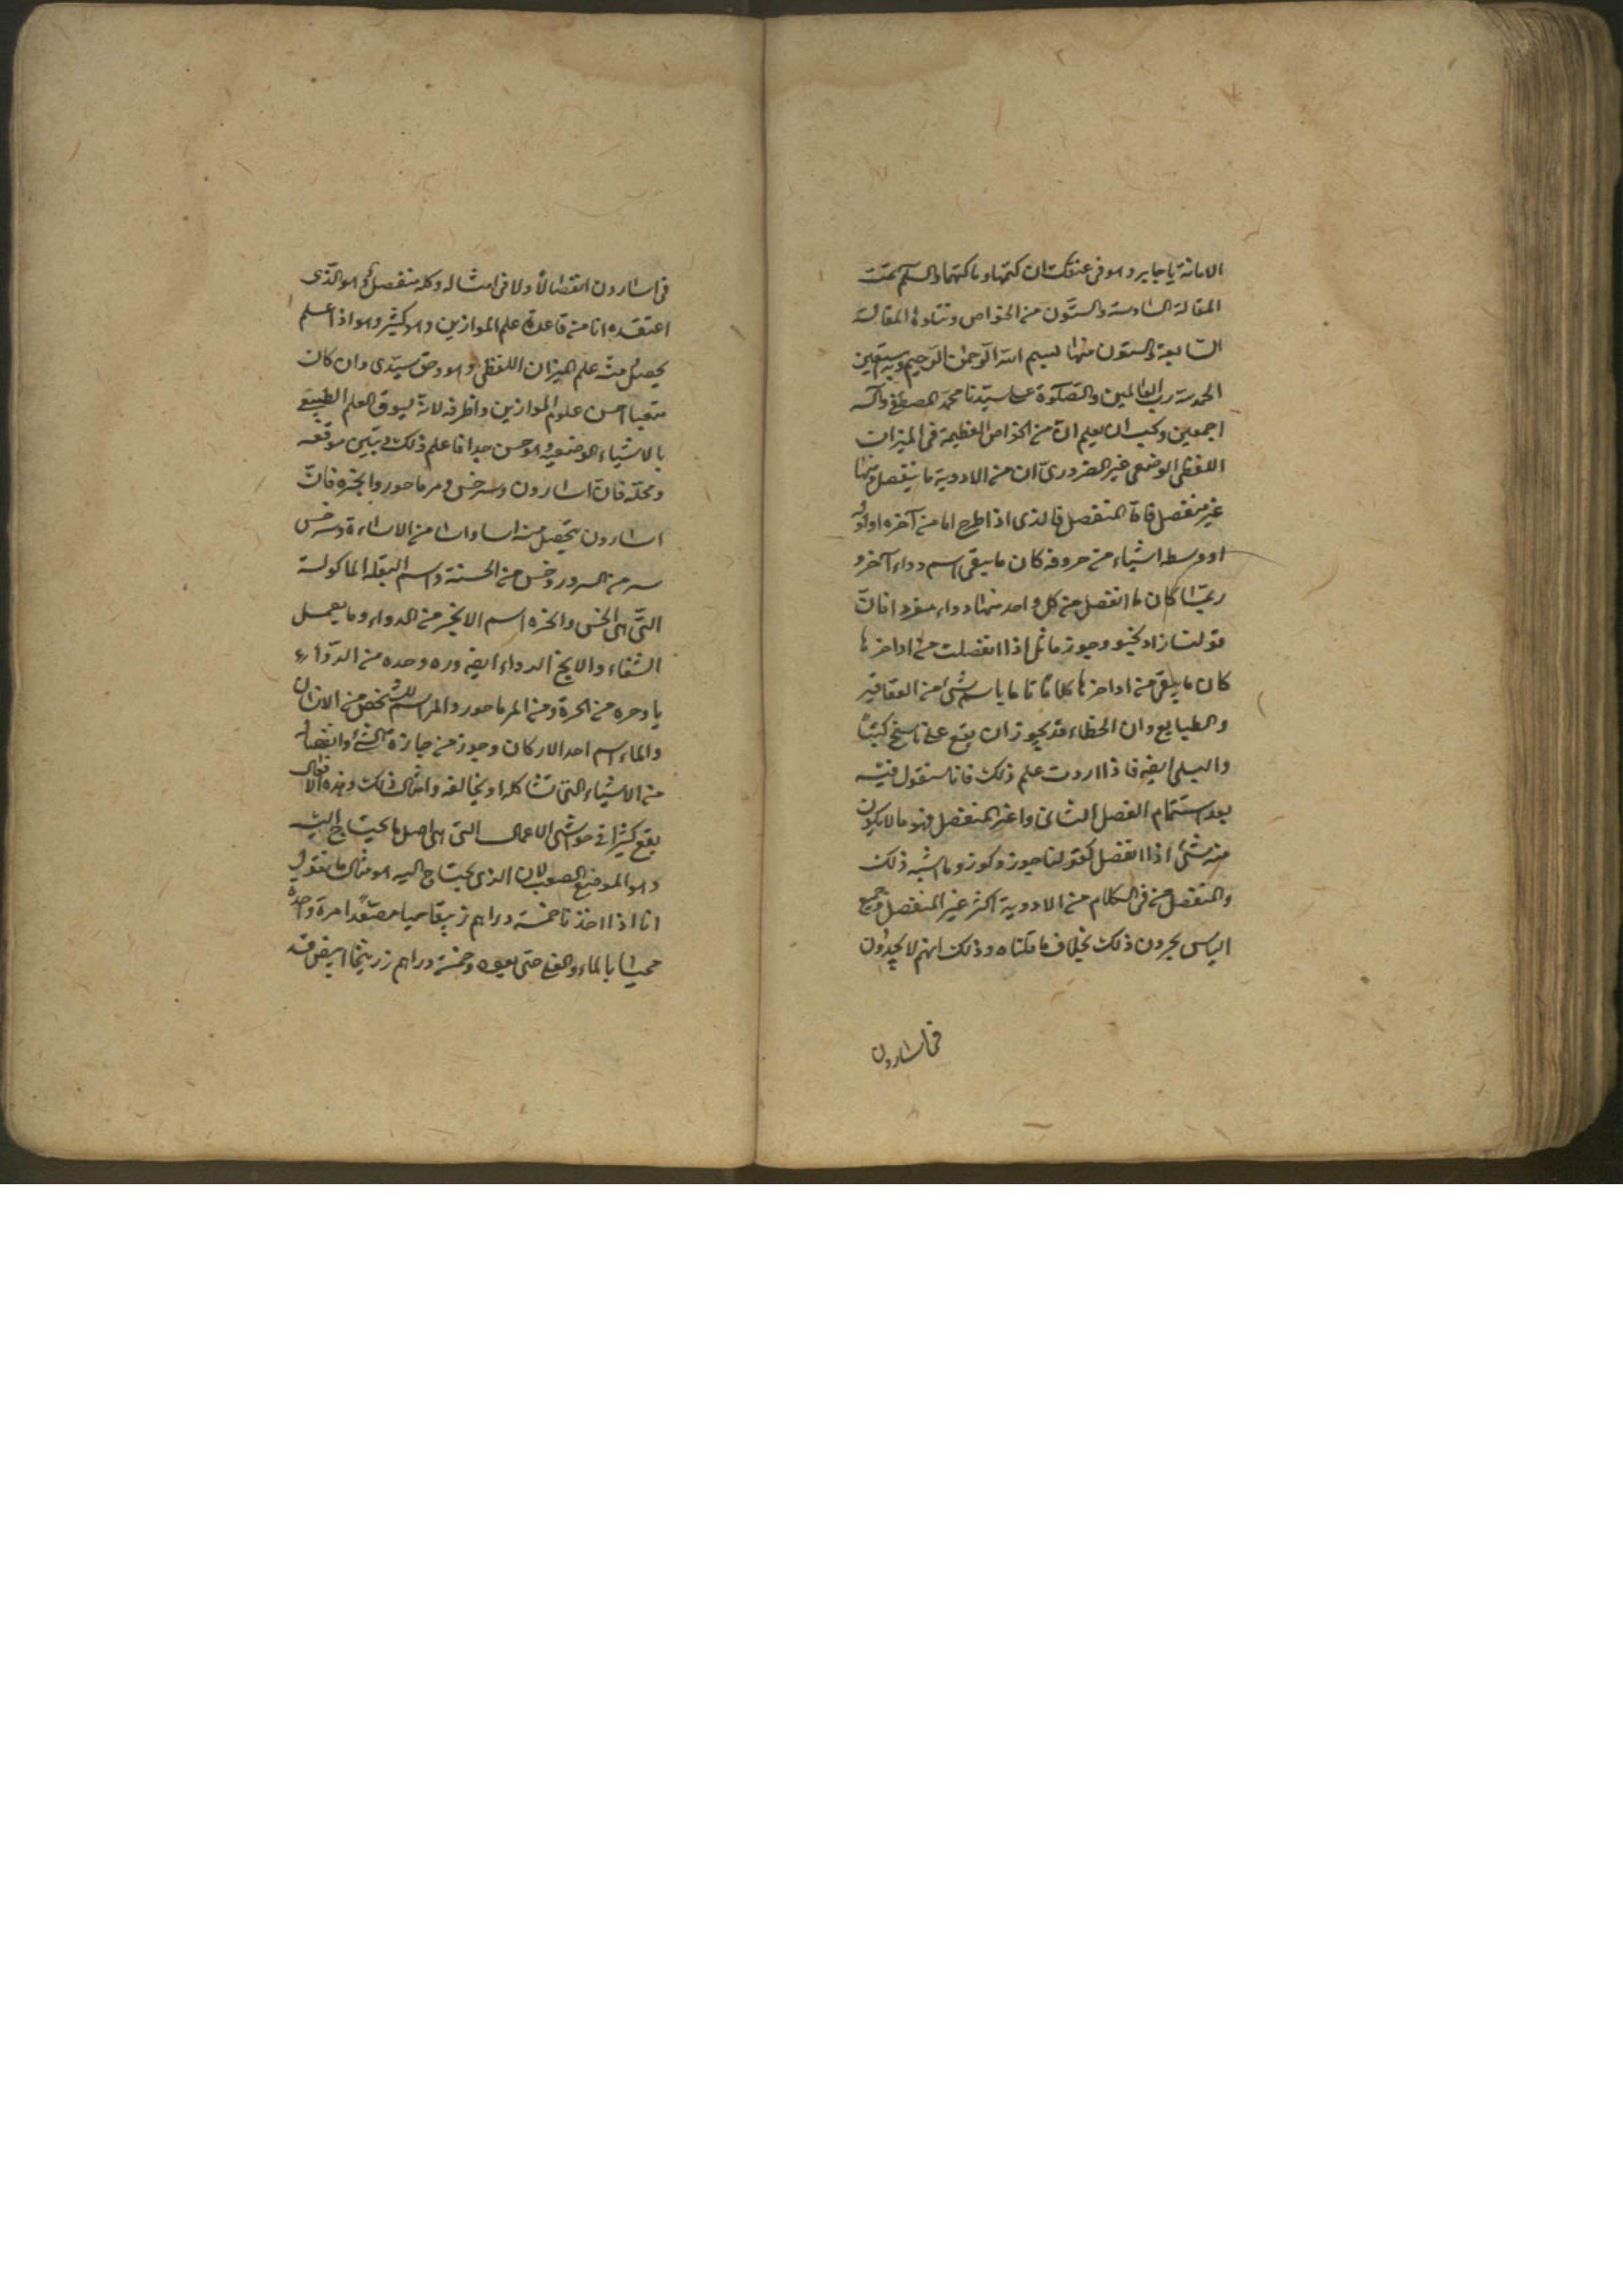 الامانة يا جابر وهو في عنقك ان كتمتها وبا كتمتها والسلم تمت
المقالة السادسة والستون من الخواص وتتلوها المقالة
السابعة والستون منها بسم الله الرحمن الرحيم وبه نستعين
الحمد لله رب العالمين والصلوة على سيدنا محمد المصطفى وآله
اجمعين ويجب ان يعلم ان من الخواص العظيمة في الميزان
اللفظي الوضعي غير الضروري ان من الادوية ما ينفصل ومنها
غير منفصل فاما المنفصل فالذي اذا طرح اما من آخره او اوله
او وسطه اشياء من حروفه كان ما يبقى اسم دواء آخر و
ربما كان ما انفصل من كل واحد منهما دواء مفردا فان
قولنا زاد وجوز ماثل اذا انفصلت من اواخرها
كان ما يبقى من اواخرها كلاما تاما باسم شيء من العقاقير
والطبايع وان الخطاء قد يجوز ان يقع على ناسخ كتبنا
ايضه فاذا اردت علم ذلك فانا سنقول فيه
بعد استتمام الفصل الثاني واما غير المنفصل فهو ما لا يكون
منه شيء اذا انفصل كقولنا جوز وكوز وما اشبه ذلك
والمنفصل من في الكلام من الادوية اكثر غير المنفصل وجميع
الناس يجرون ذلك بخلاف ما قلناه وذلك انهم لا يجدون
في اسارون
في اسارون انفصالا ولا في امثاله وكله منفصل والذي
اعتقده انا من قاعدة علم الموازين وهو كثير وهو اذا علم
يحصل منه علم الميزان اللفظي وهو وحق سيدي وان كان
متعبا احسن علوم الموازين واظرفه لانه يسوق العلم الطبيعي
بالاشياء الوضعية وهو حسن جدا فاعلم ذلك وتبين موقعه
ومحله فان اسارون وسرخس ومرماحور وانجره فان
اسارون يتحصل منه اسا واسا من الاساءة وسرخس
سر من السرور وخس من الخسة واسم البقلة الماكولة
التي هي الخس وانجره اسم الانجر من الدواء وما يعمل
الشفاء والانج الدواء ايضه وره وحده من الدواء
يا وحره من الحرة ومن المرماحور والمر اسم للشخص من الانسان
والماء اسم احد الاركان وجوز من جايزة الشيء وانفصاله
من الاشياء التي تشاكله او يخالفه وامثال ذلك وهذه الافعال
يقع كثيرا في حواشي الاعمال التي هي اصل ما يحتاج اليه
وهو الموضع الصعب لان الذي يحتاج اليه هو مثال ما نقول
انا اذا اخذنا خمسة دراهم زيبقا مصعدا مرة واحدة
بالماء حتى وخمسة دراهم زرنيخا ابيض قد